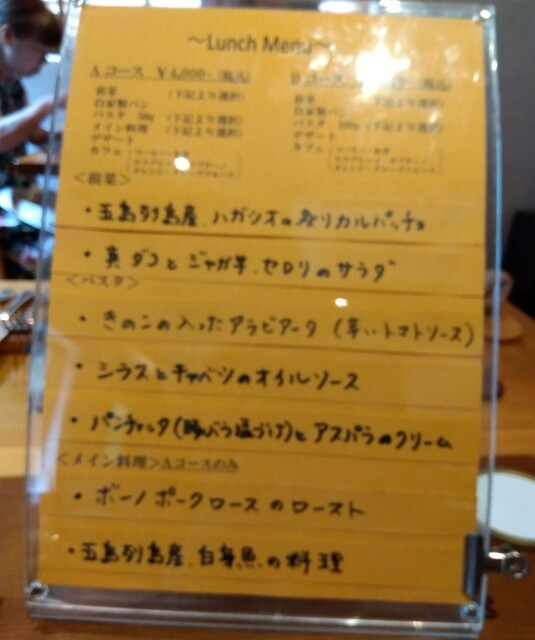 ～Lunch Menu～
Aコース ￥4,000- (税込)
前菜 (下記より選択)
自家製パン
パスタ 50g (下記より選択)
メイン料理 (下記より選択)
デザート
カフェ
Bコース (税込)
前菜 (下記より選択)
自家製パン
パスタ 100g (下記より選択)
デザート
カフェ
＜前菜＞
・五島列島産、ハガツオの炙りカルパッチョ
・真ダコとジャガ芋、セロリのサラダ
＜パスタ＞
・きのこの入ったアラビアータ (辛いトマトソース)
・シラスとキャベツのオイルソース
・パンチェッタ(豚バラ塩づけ)とアスパラのクリーム
＜メイン料理＞Aコースのみ
・ボーノポークロースのロースト
・五島列島産、白身魚の料理